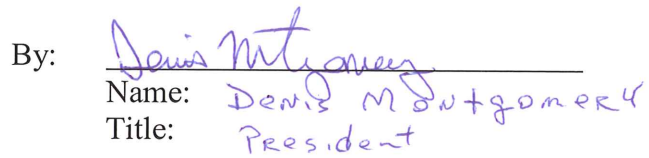 By: Denis Montgomery
Name: Denis Montgomery
Title: President